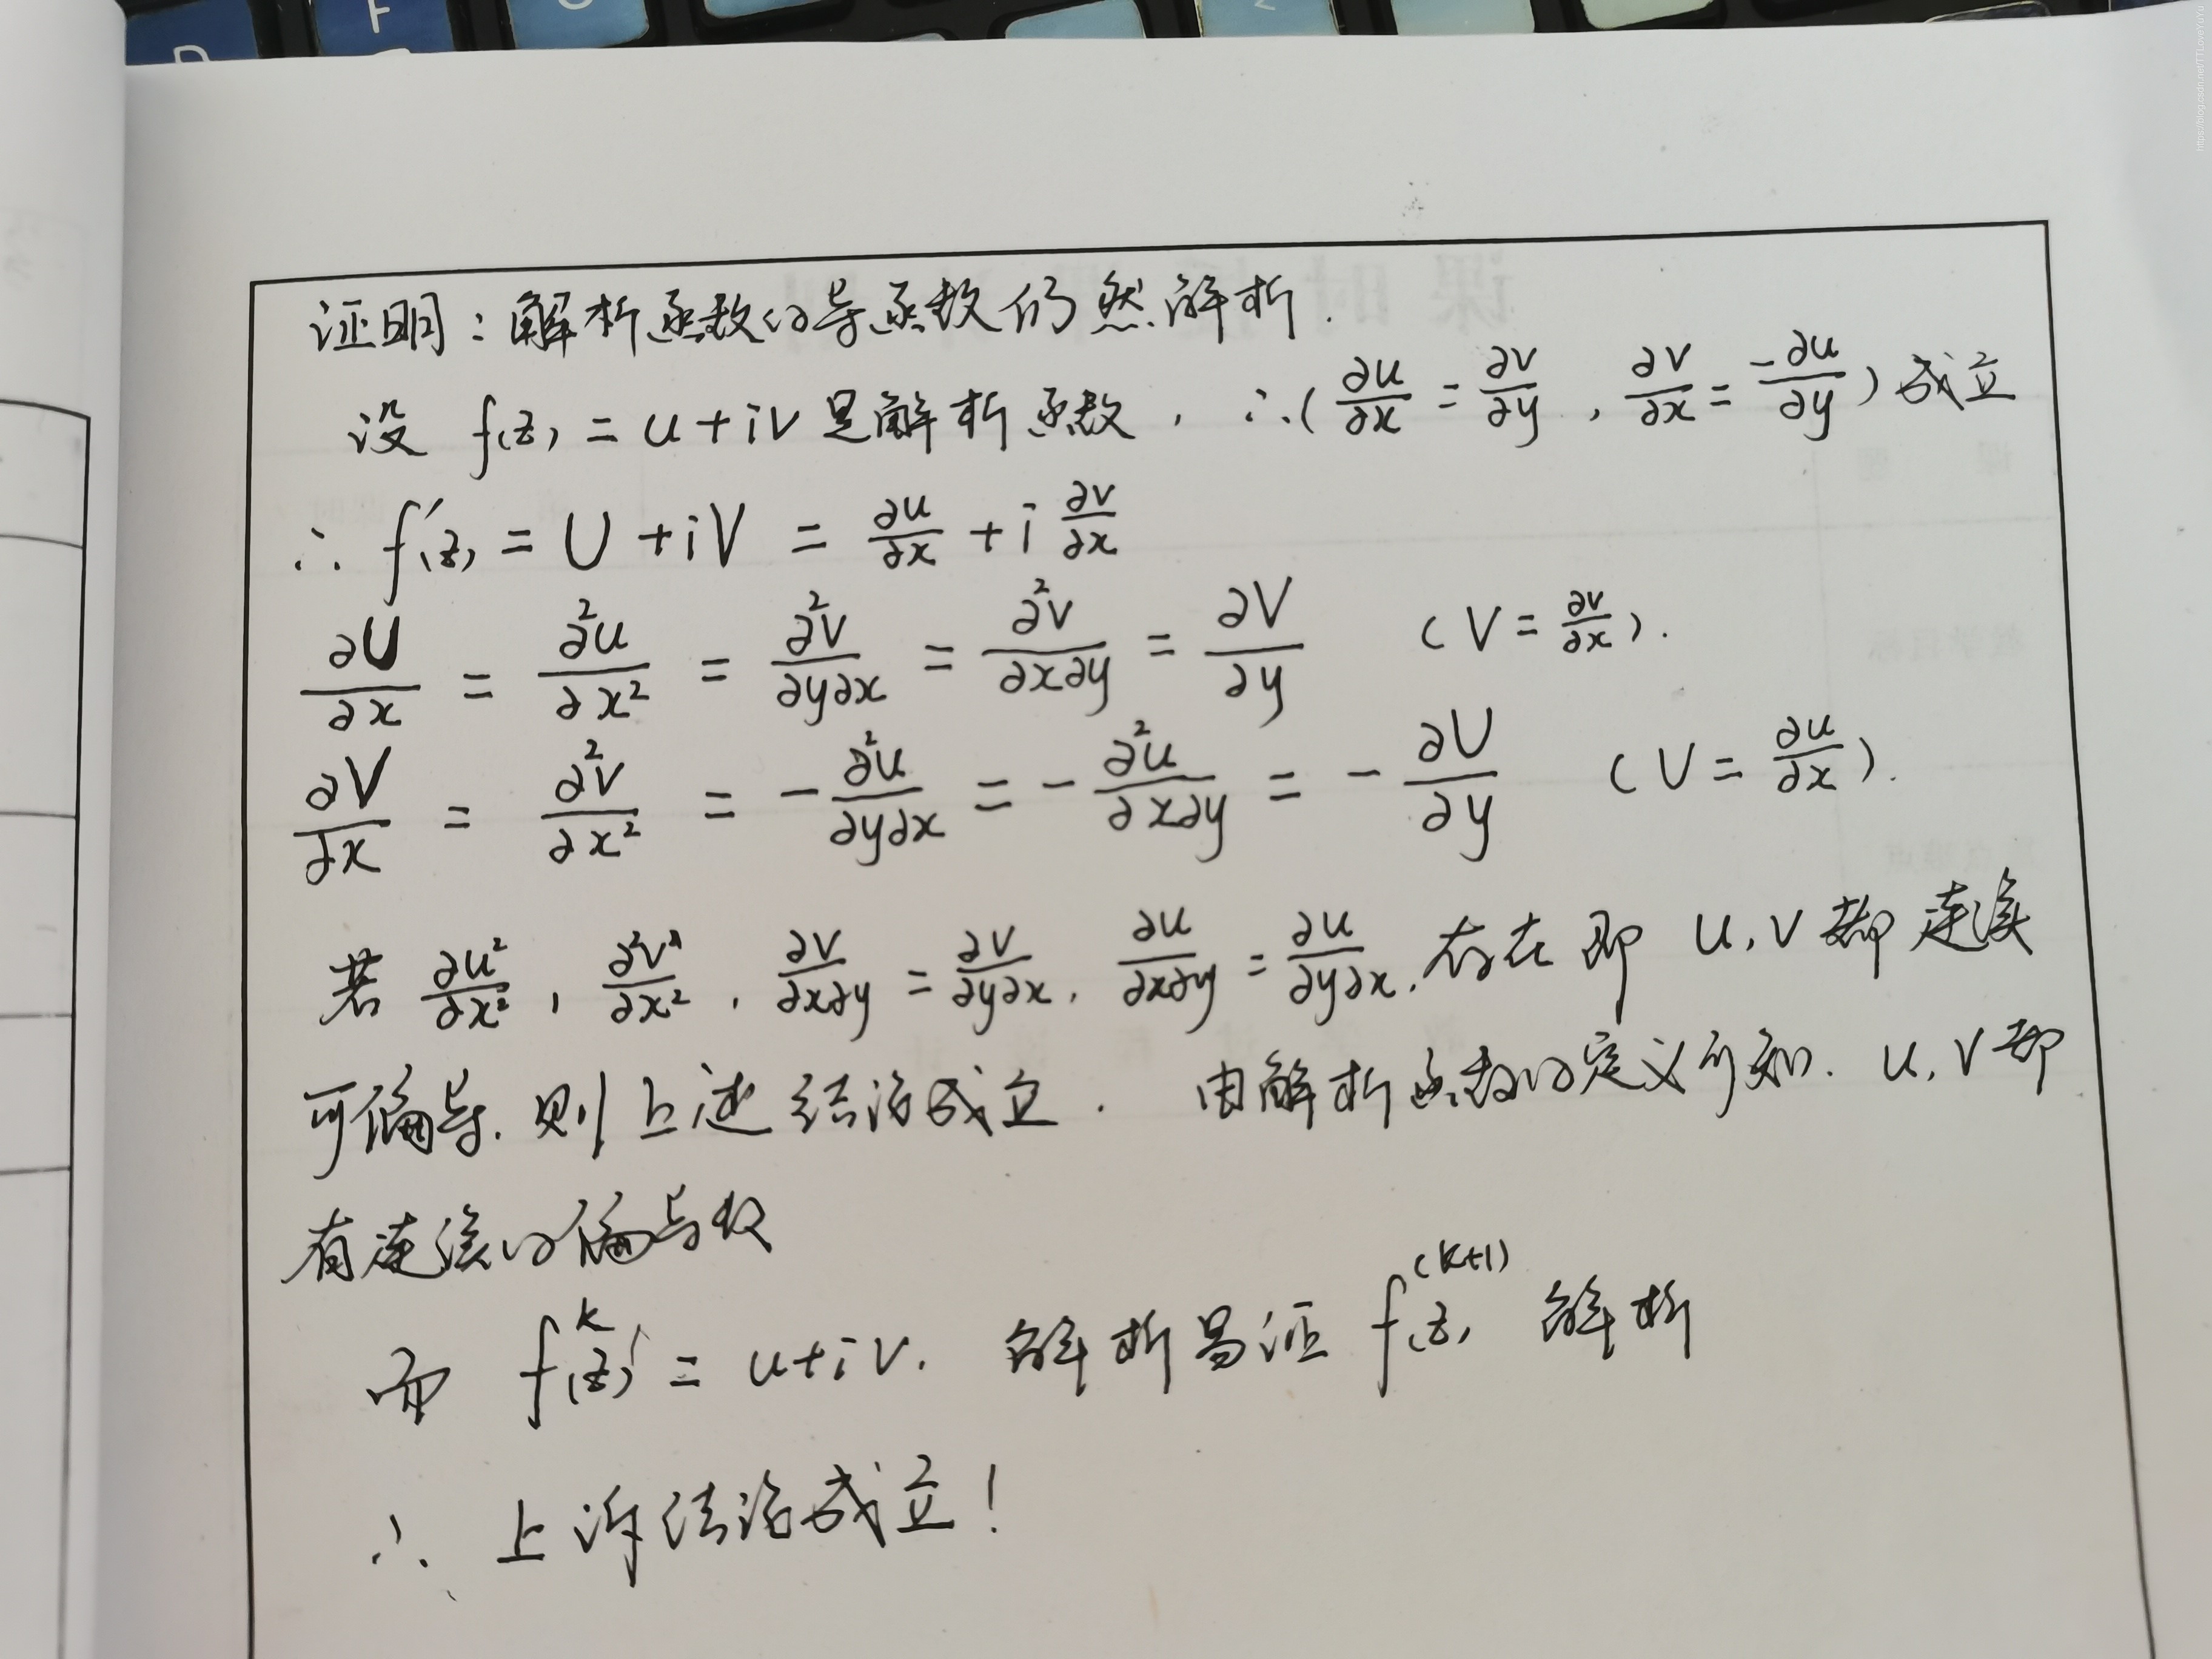 证明：解析函数的导函数仍然解析.
设 f(z) = u + iv 是解析函数, ∴ (∂u/∂x = ∂v/∂y , ∂v/∂x = -∂u/∂y) 成立
∴ f'(z) = U + iV = ∂u/∂x + i ∂v/∂x
∂U/∂x = ∂²u/∂x² = ∂²v/∂y∂x = ∂²v/∂x∂y = ∂V/∂y (V = ∂v/∂x).
∂V/∂x = ∂²v/∂x² = -∂²u/∂y∂x = -∂²u/∂x∂y = -∂U/∂y (U = ∂u/∂x).
若 ∂u²/∂x² , ∂²v²/∂x² , ∂v/∂x∂y = ∂v/∂y∂x , ∂u/∂x∂y = ∂u/∂y∂x . 存在 即 u, v 都 连续
可偏导. 则上述结论成立. 由解析函数的定义可知. u, v 都
有连续的偏导数
而 f^k(z)' = u+iv. 解析易证 f^(k+1)(z) 解析
∴ 上诉结论成立!
https://blog.csdn.net/TTLoveYuYu
D
F